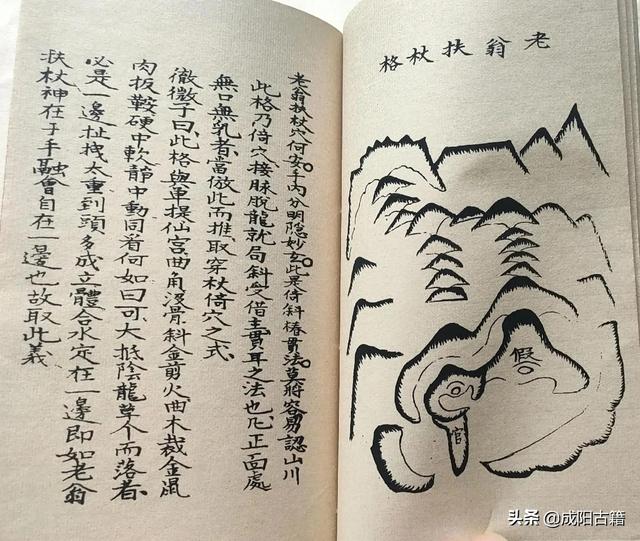 老翁扶杖格
假
官
老翁扶杖穴何安。手內分明隐妙玄。此是倚斜椿貫法。莫將容易認山川
此格乃倚穴接脉脫龍就局斜受借主貫耳之法也凡正面處
無口無乳者當倣此而推取穿杖倚穴之式
徹徹子曰此格與單提仙宮曲角沒骨斜金剪火曲木裁金鼠
肉板鞍硬中軟靜中動同看何如曰可大抵陰龍單个而落者
必是一邊扯拽太重到頭多成立體合水定在一邊即如老翁
扶杖神在于手融會自在一邊也故取此義
头条 @成阳古籍